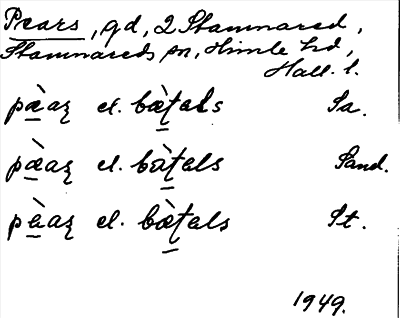 Pears, gd, 2 Stamnared,
Stamnareds sn, Himle hd,
Hall. l.
pæ̀aʂ el. bæ̀ʈals Sa.
pæ̀aʂ el. bæ̀ʈals Sand.
pæ̀aʂ el. bæ̀ʈals St.
1949.